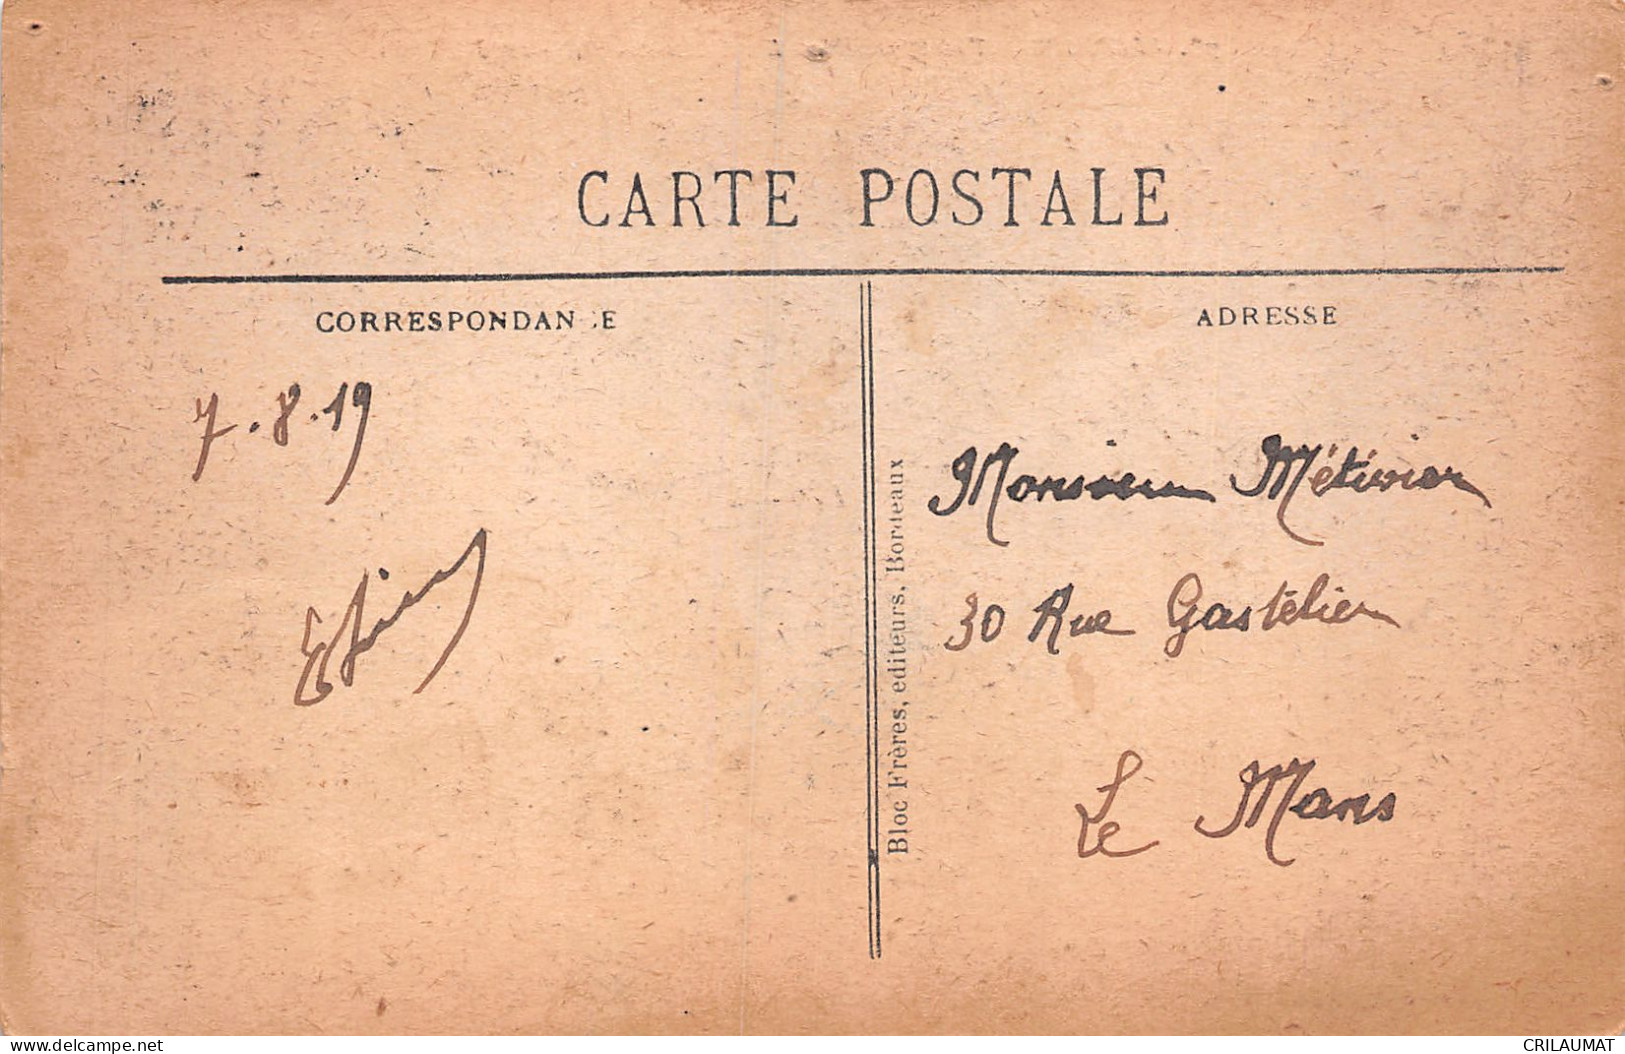 CARTE POSTALE
CORRESPONDANCE
ADRESSE
7.8.19
Monsieur Métivier
30 Rue Gastelier
Le Mans
Bloc Frères, editeurs, Bordeaux
www.delcampe.net
CRILAUMAT